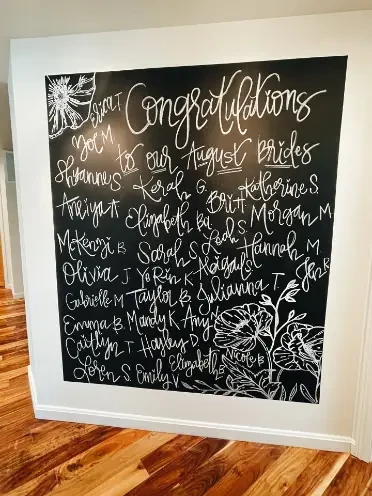 Congratulations
to our August brides
Erica T
Zoe M
Shyanne S Kerah G. Britt Katherine S.
Aneiya A Elizabeth Morgan M
McKenzi B Sarah S Leah S Hannah M
Olivia J YoRin K Abigail S Jen R
Gabrielle M Taylor B Julianna T.
Emma B. Mandy K Amy M
Caitlyn T Hayley D
Loren S. Emily V Elizabeth B Nicole B